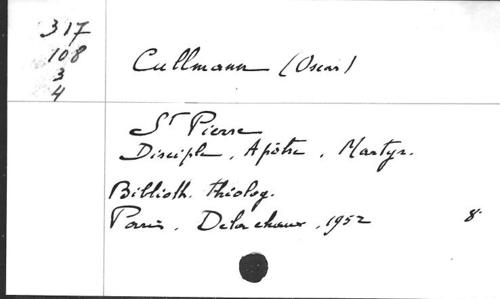 317
108
3
4
Cullmann (Oscar)
St Pierre
Disciple, Apôtre, Martyr.
Billioth. théolog.
Paris, Delachaux, 1952 8°